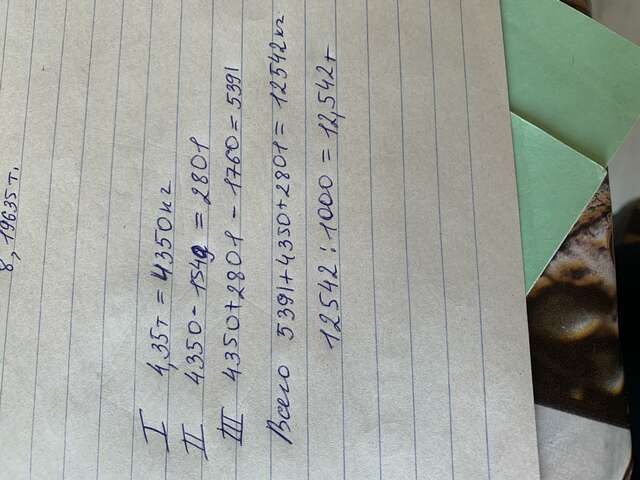 8,19635т.
I 4,35т = 4350кг
II 4350 - 1549 = 2801
III 4350+2801 - 1760 = 5391
Всего 5391+4350+2801 = 12542кг
12542 : 1000 = 12,542т